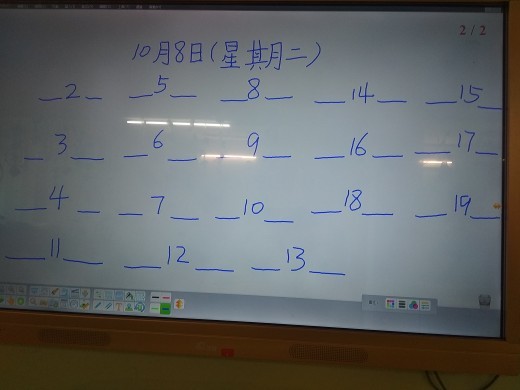 2/2
10月8日(星期二)
__2__ __5__ __8__ __14__ __15__
__3__ __6__ __9__ __16__ __17__
__4__ __7__ __10__ __18__ __19__
__11__ __12__ __13__